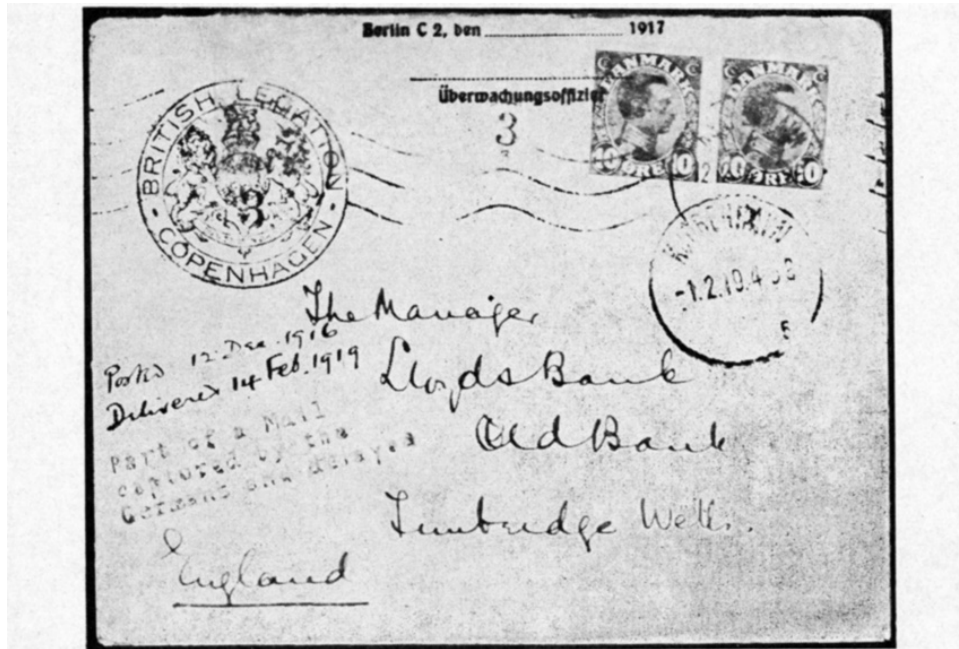 Berlin C 2, den 1917
Überwachungsoffizier
3
BRITISH LEGATION
COPENHAGEN
3
DANMARK
10 ØRE 10
DANMARK
10 ØRE 10
2
-1.2.19.4
The Manager
Lloyds Bank
Old Bank
Tunbridge Wells.
England
Posted 12 Dec. 1916
Delivered 14 Feb. 1919
Part of a Mail
captured by the
Germans and delayed